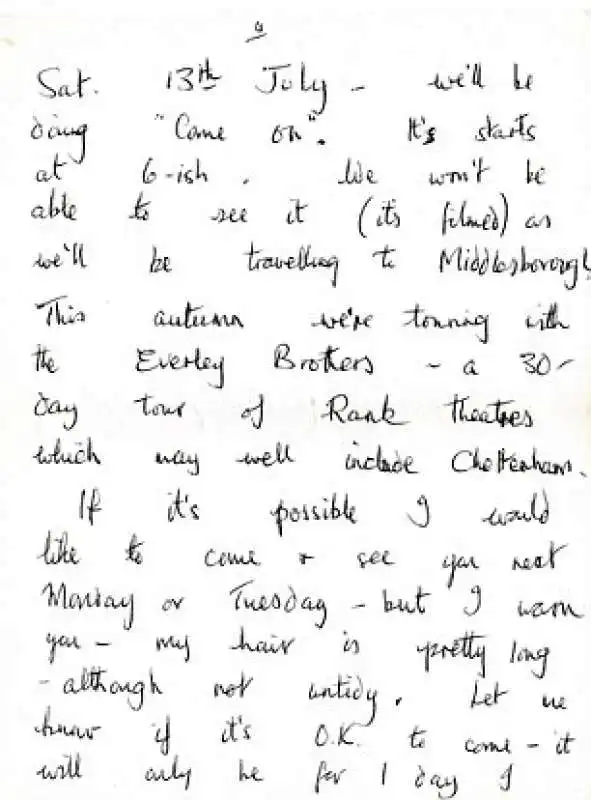 4
Sat. 13th July - we'll be
doing "Come on". It's starts
at 6-ish. We won't be
able to see it (its filmed) as
we'll be travelling to Middlesborough
This autumn we're touring with
the Everley Brothers - a 30-
day tour of Rank theatres
which may well include Cheltenham.
If it's possible I would
like to come & see you next
Monday or Tuesday - but I warn
you - my hair is pretty long
- although not untidy. Let me
know if it's O.K. to come - it
will only be for 1 day I